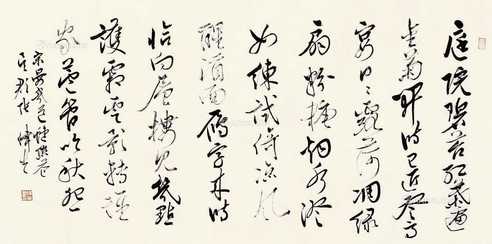 庭院碧苔红叶遍
金菊开时已近重阳
宴日日露荷凋绿
扇粉塘烟水澄
如练试倚凉风
醒酒面雁字来时
恰向层楼见几点
护霜云影转谁
家芦管吹秋怨
宋晏几道蝶恋花